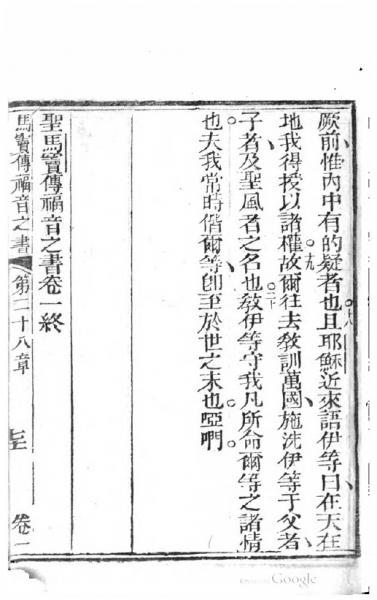 厥前惟內中有的疑者也。十八且耶穌近來語伊等曰、在天在
地、我得授以諸權。十九故爾往去教訓萬國、施洗伊等于父者、
子者、及聖風者之名也。二十教伊等守我凡所命爾等之諸情
也。夫我常時偕爾等、卽至於世之末也。啞們。
聖馬竇傳福音之書卷一終
馬竇傳福音之書 第二十八章 卷一
Google